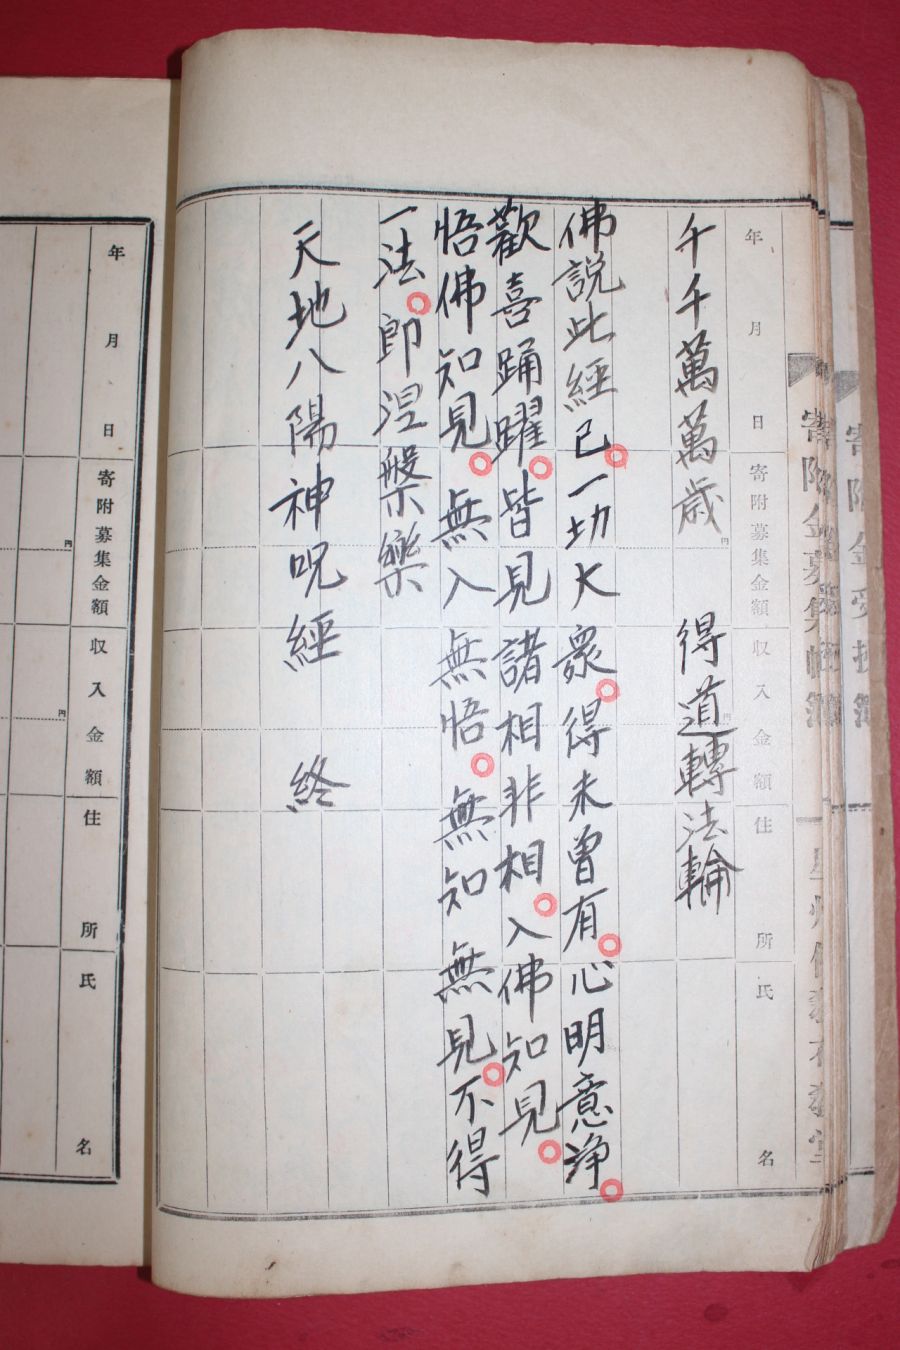 寄附金受
寄附金募集帳簿
星州佛教布教堂
年 月 日 寄附募集金額 収入金額 住所 氏名
円 円
千千萬萬歳 得道轉法輪
佛説此經已一切大衆得未曾有心明意淨
歡喜踊躍皆見諸相非相入佛知見
悟佛知見無入無悟無知無見不得
一法即涅槃樂
天地八陽神呪經 終
年 月 日 寄附募集金額 収入金額 住所 氏名
円 円